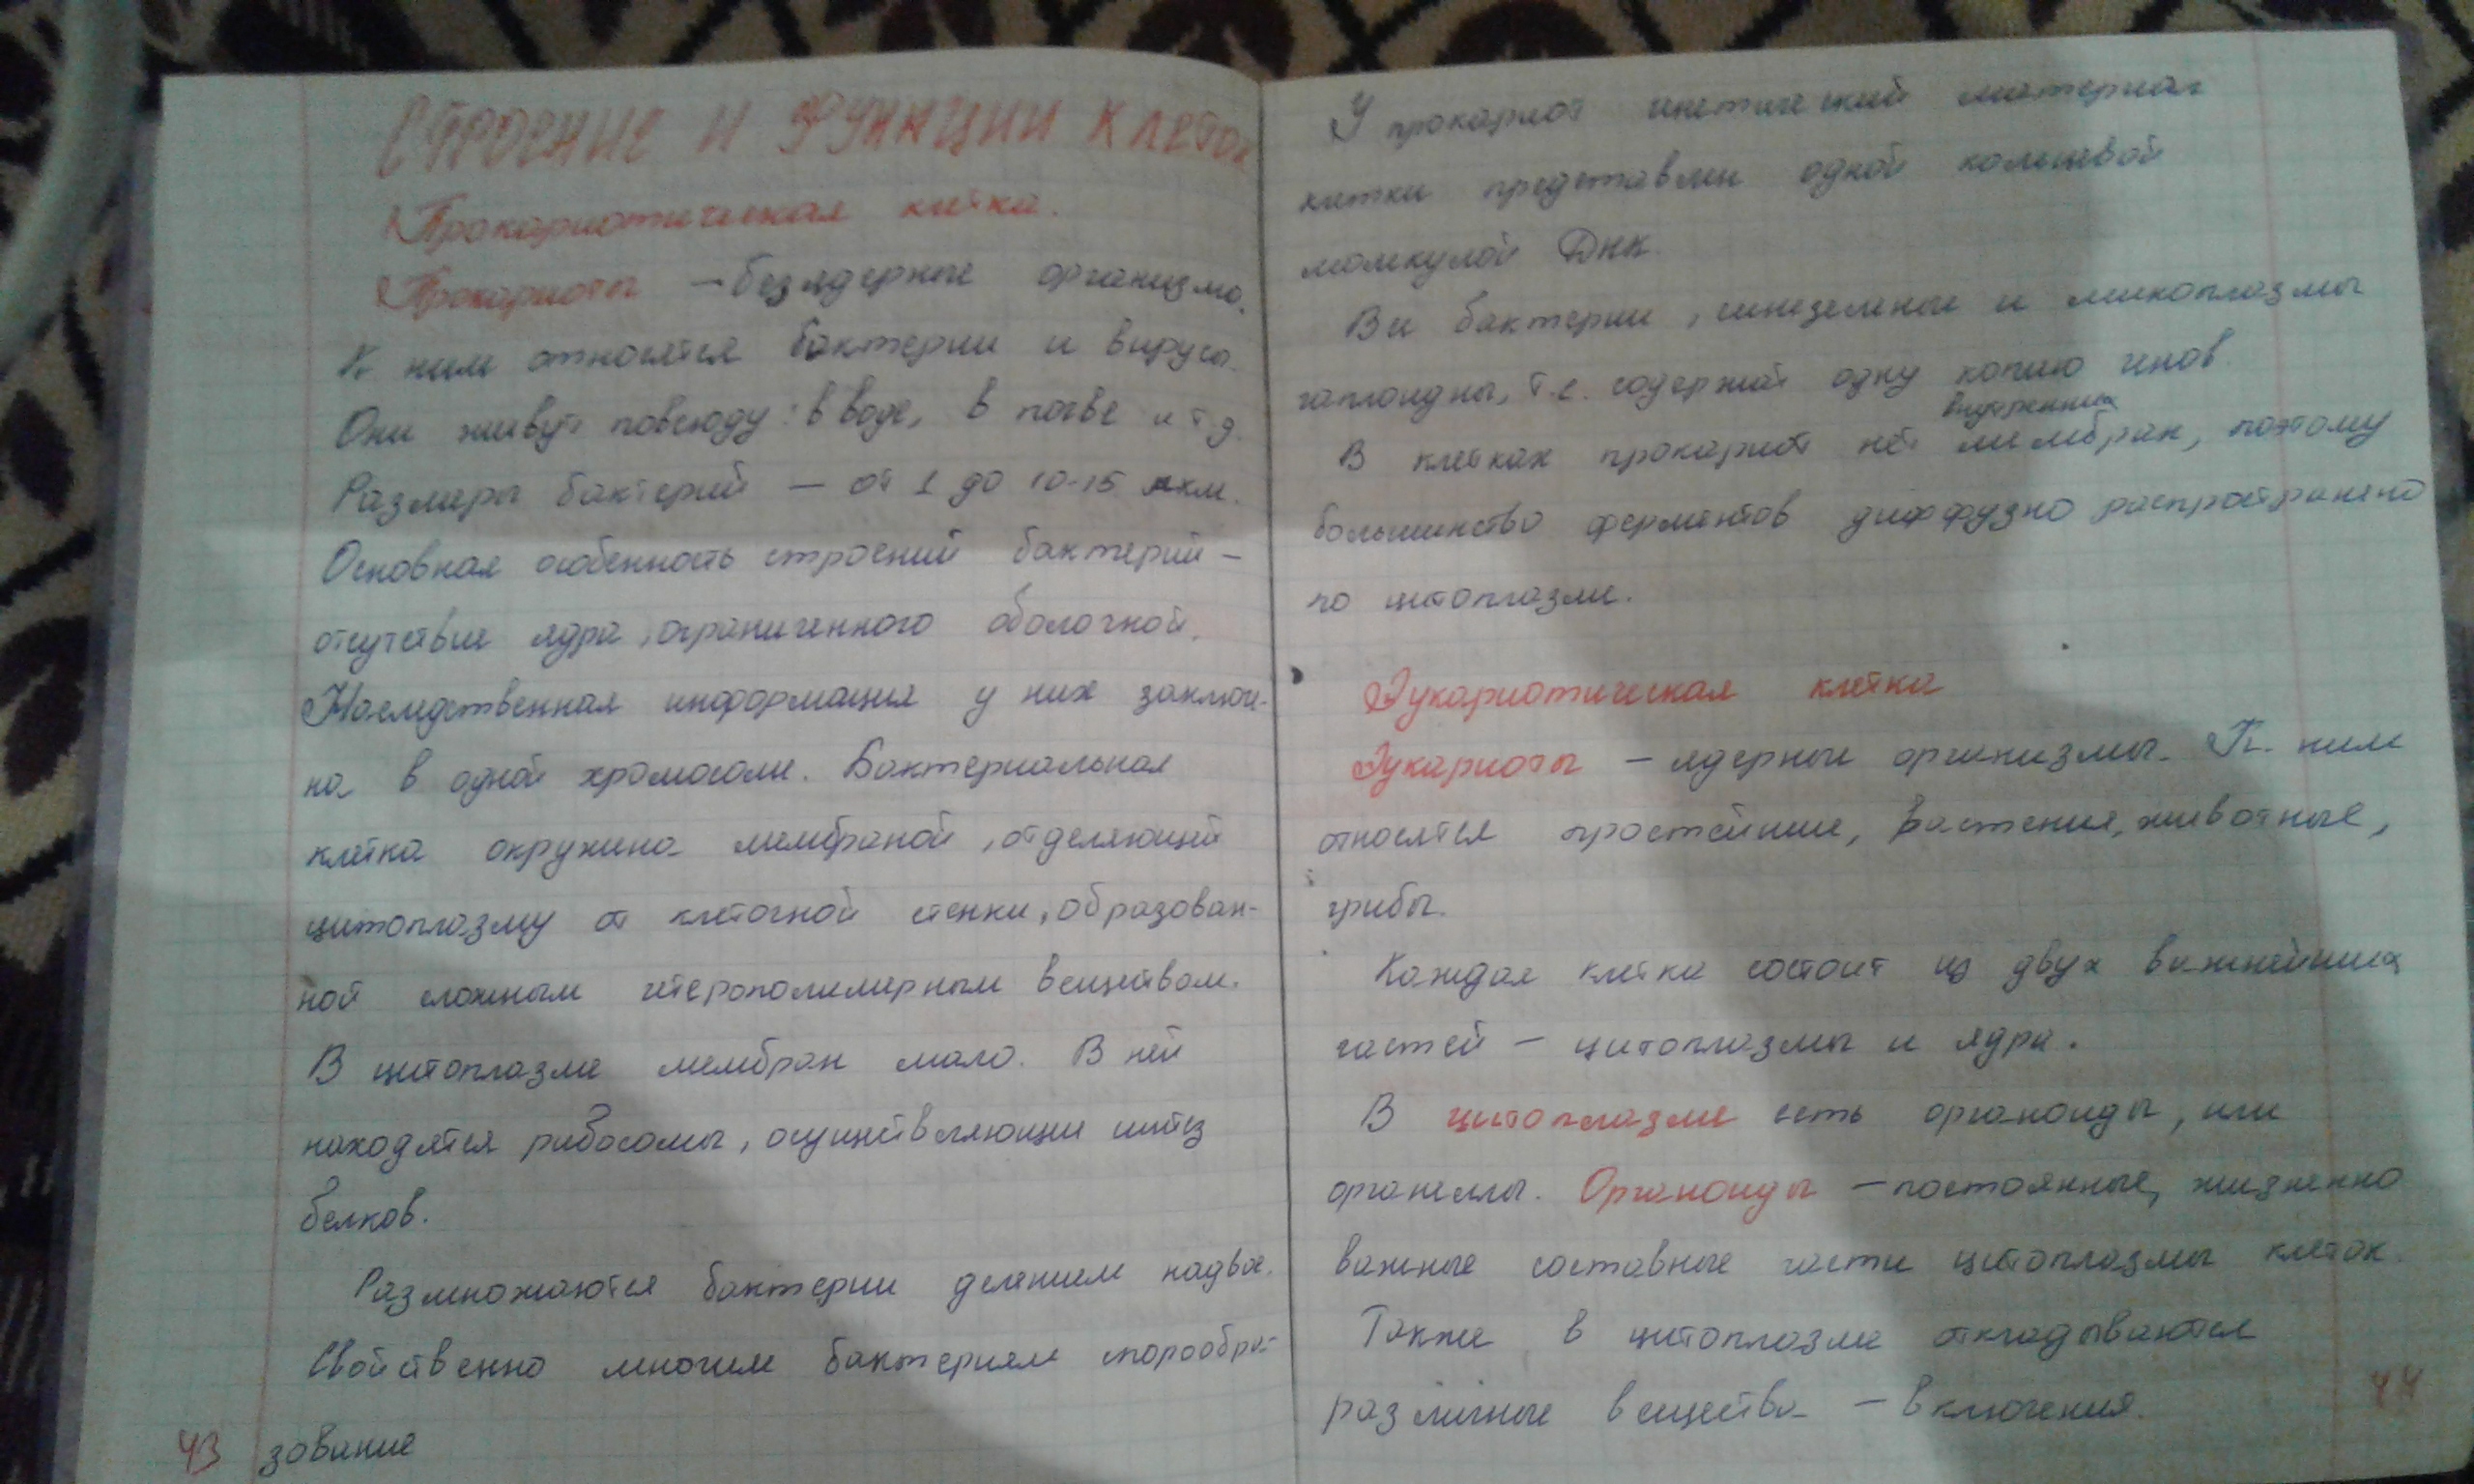 СТРОЕНИЕ И ФУНКЦИИ КЛЕТОК
Прокариотическая клетка.
Прокариоты – безядерные организмы.
К ним относятся бактерии и вирусы.
Они живут повсюду: в воде, в почве и т д.
Размеры бактерий – от 1 до 10-15 мкм.
Основная особенность строений бактерий –
отсутствие ядра, ограниченного оболочкой.
Наследственная информация у них заключе-
на в одной хромосоме. Бактериальная
клетка окружена мембраной, отделяющей
цитоплазму от клеточной стенки, образован-
ной сложным гетерополимерным веществом.
В цитоплазме мембран мало. В ней
находятся рибосомы, осуществляющие синтез
белков.
Размножаются бактерии делением надвое.
Свойственно многим бактериям спорообра-
43 зование
У прокариот генетический материал
клетки представлен одной кольцевой
молекулой ДНК.
Все бактерии, синезеленые и микоплазмы
гаплоидны, т.е. содержат одну копию генов.
внутренних
В клетках прокариот нет мембран, поэтому
большинство ферментов диффузно распространено
по цитоплазме.
Эукариотическая клетка
Эукариоты – ядерные организмы. К ним
относятся простейшие, растения, животные,
грибы.
Каждая клетка состоит из двух важнейших
частей – цитоплазмы и ядра.
В цитоплазме есть органоиды, или
органеллы. Органоиды – постоянные, жизненно
важные составные части цитоплазмы клеток.
Также в цитоплазме откладываются
различные вещества – включения.
44